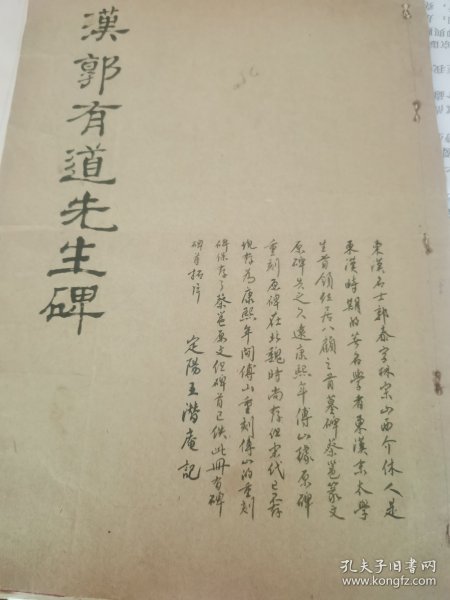 漢郭有道先生碑
東漢名士郭泰字林宗山西介休人是
東漢時期的著名學者東漢京太學
生首領位居八顧之首墓碑蔡邕篆文
原碑失之久遠康熙年傅山據原碑
重刻原碑在北魏時尚存但宋代已不存
現存為康熙年間傅山重刻傅山的重刻
碑保存了蔡邕原文但碑首已佚此冊有碑
碑首拓片
定陽王潛庵記
孔夫子旧书网
www.kongfz.com